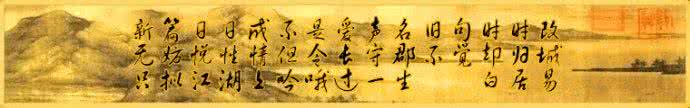 新篇日日成不是爱声名旧句时时改
无妨悦性情但令长守郡不觉却归城
只拟江湖上吟哦过一生 白居易